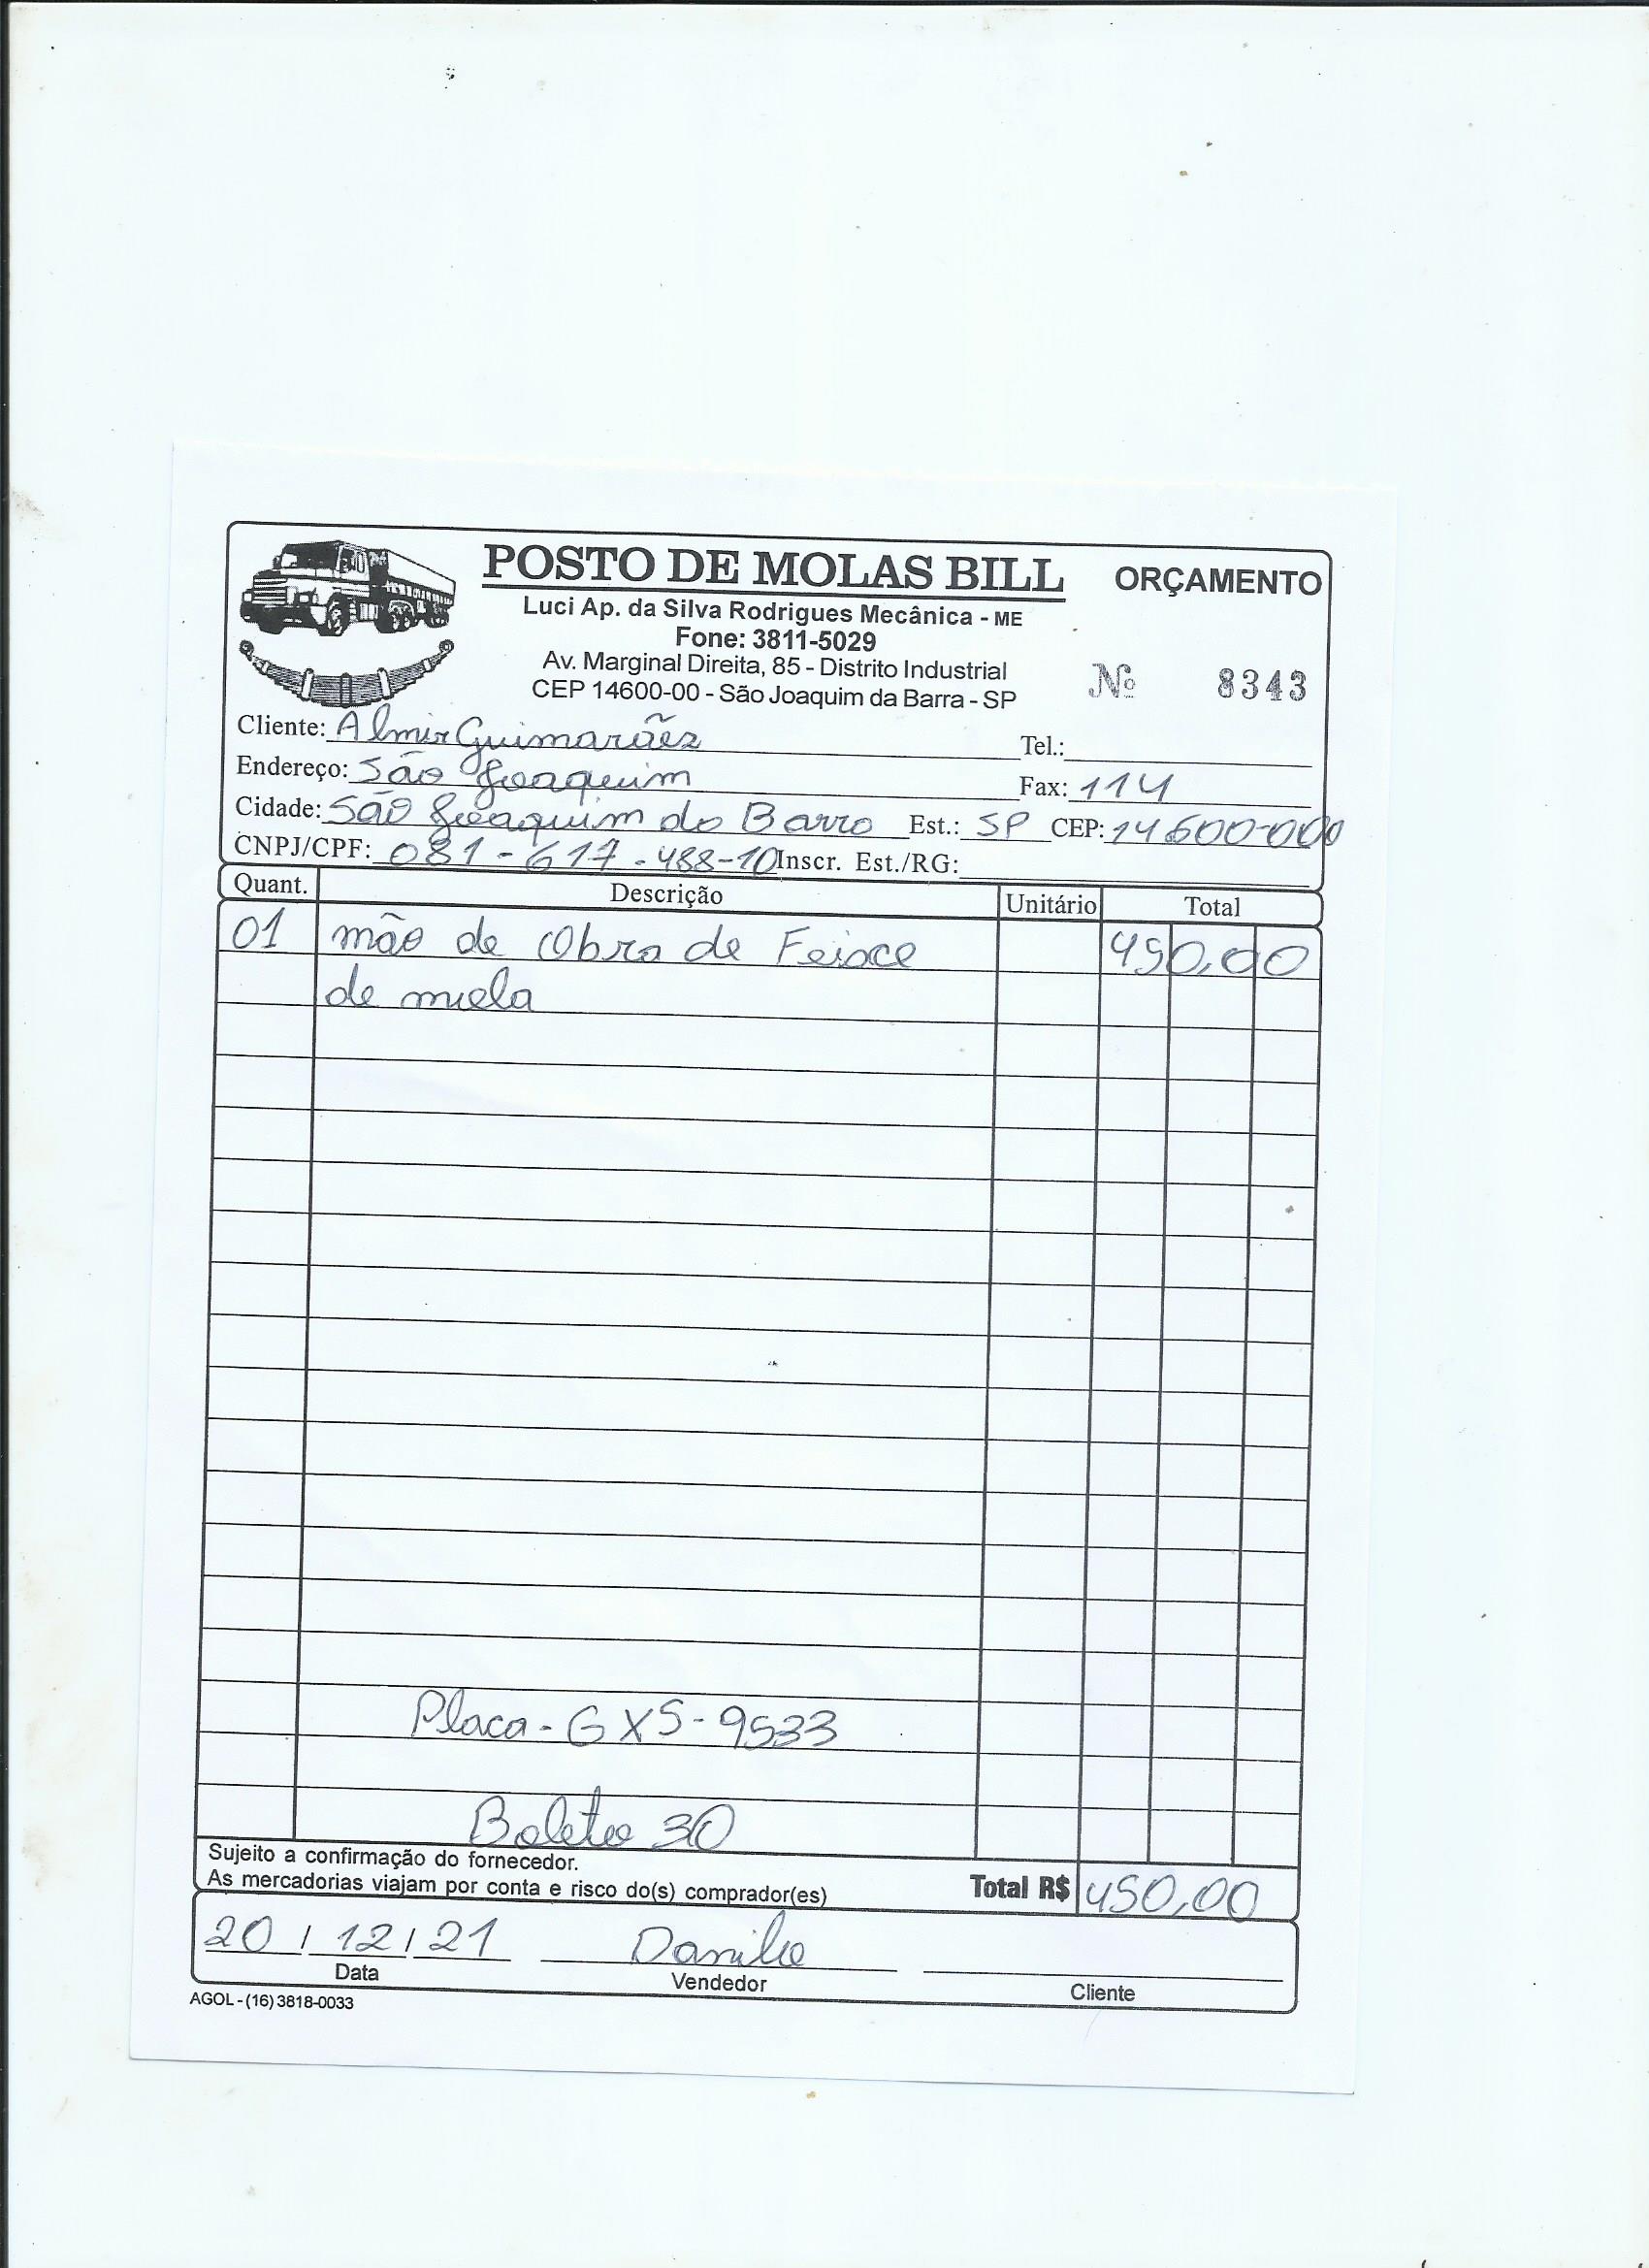 POSTO DE MOLAS BILL ORÇAMENTO
Luci Ap. da Silva Rodrigues Mecânica - ME
Fone: 3811-5029
Av. Marginal Direita, 85 - Distrito Industrial
CEP 14600-00 - São Joaquim da Barra - SP
Nº 8343
Cliente: Almir Guimarães Tel.:
Endereço: São Joaquim Fax: 114
Cidade: São Joaquim da Barra Est.: SP CEP: 14600-000
CNPJ/CPF: 081-617.488-10 Inscr. Est./RG:
Quant. Descrição Unitário Total
01 mão de Obra de Feixe 450,00
de mola
Placa - GXS-9533
Boleto 30
Sujeito a confirmação do fornecedor.
As mercadorias viajam por conta e risco do(s) comprador(es) Total R$ 450,00
20 / 12 / 21 Danilo
Data Vendedor Cliente
AGOL - (16) 3818-0033